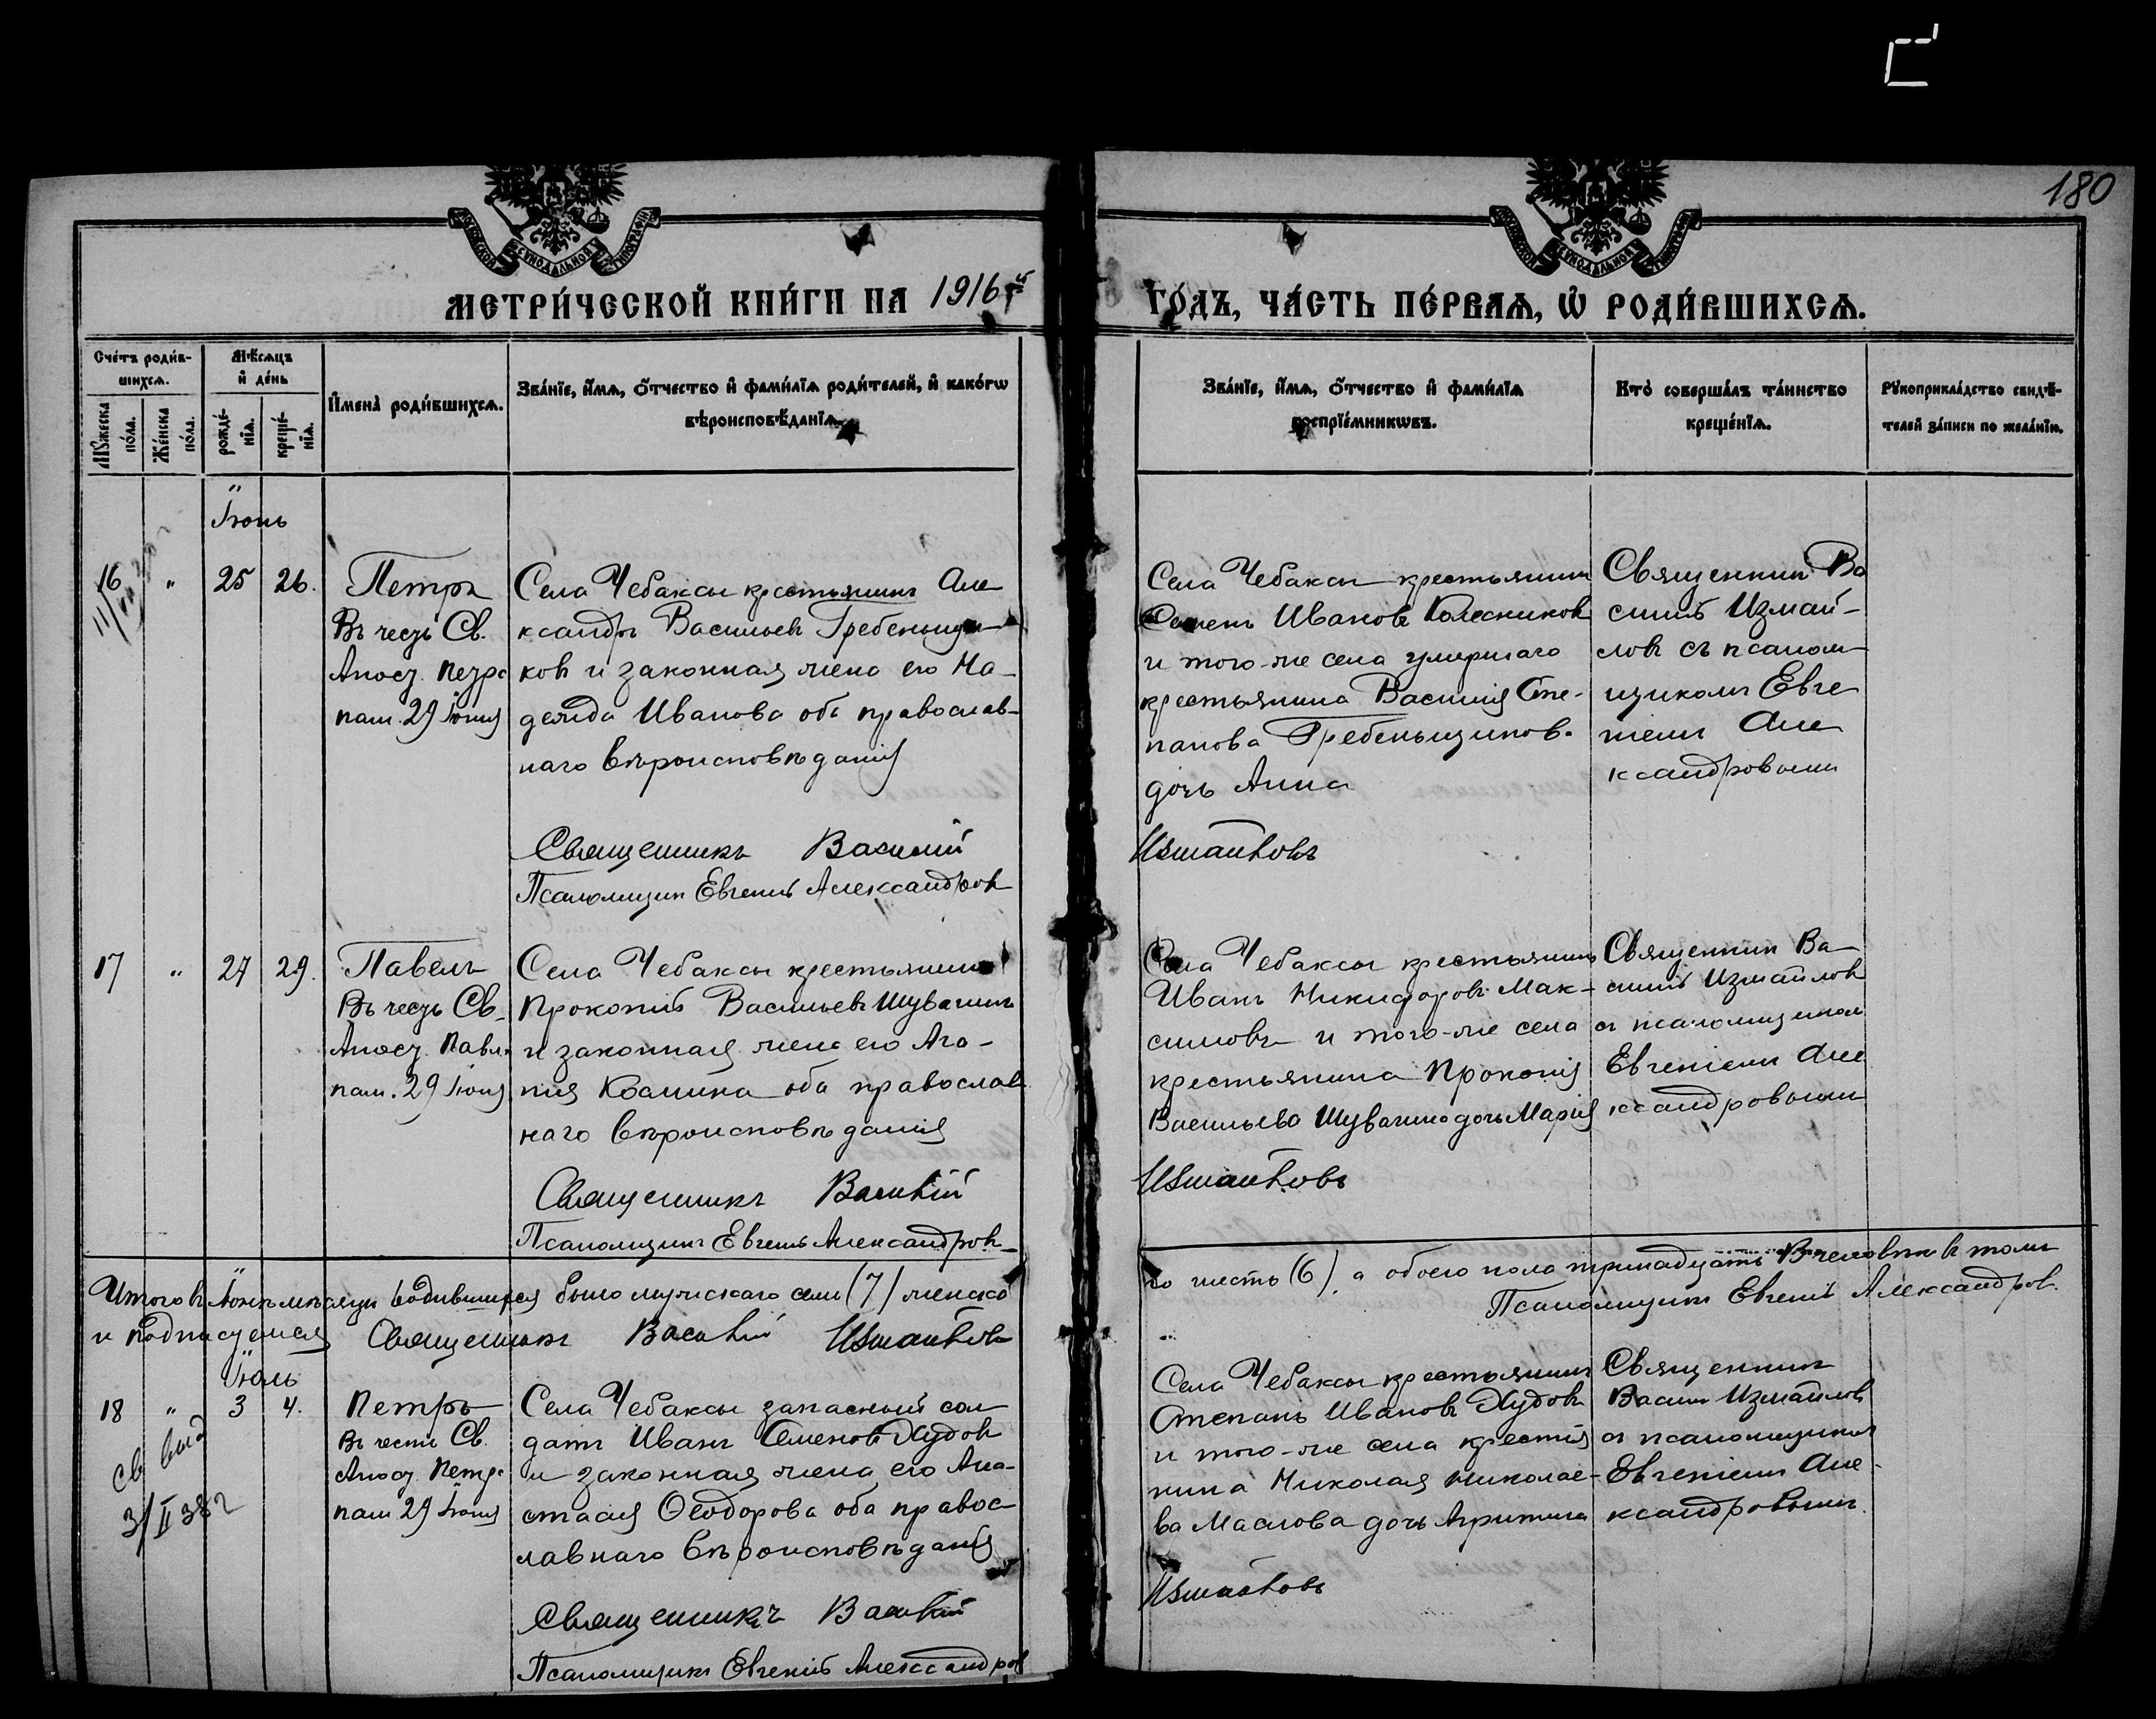 180
МЕТРИ́ЧЕСКОЙ КНИ́ГИ НА 1916й
ГО́ДЪ, ЧА́СТЬ ПЕ́РВАѦ, Ѡ҆ РОДИ́ВШИХСѦ.
Сче́тъ роди́в-
шихсѧ.
Мꙋ́жеска
по́ла.
Же́нска
по́ла.
Мѣ́сѧцъ
и҆ де́нь
рожде́-
нїѧ.
креще́-
нїѧ.
И҆мена̀ роди́вшихсѧ.
Зва́нїе, и҆́мѧ, ѻ҆́тчество и҆ фами́лїѧ роди́телей, и҆ како́гѡ
вѣроисповѣ́данїѧ.
Зва́нїе, и҆́мѧ, ѻ҆́тчество и҆ фами́лїѧ
воспрїе́мникѡвъ.
Кто̀ соверша́лъ та́инство
креще́нїѧ.
Рꙋкоприкла́дство свидѣ́-
телей за́писи по жела́нїю.
Іюнь
16 " 25 26.
Петръ
Въ честь Св.
Апост. Петра
пам. 29 Іюня
Села Чебаксы крестьянинъ Але
ксандръ Васильевъ Гребеньщи-
ков и законная жена его На-
дежда Иванова обѣ православ-
наго вѣроисповѣданія
Священникъ Василій
Псаломщик Евгеній Александров
Села Чебаксы крестьянинъ
Семенъ Иванов Колесников
и того-же села умершаго
крестьянина Василія Сте-
панова Гребеньщиков.
дочь Анна
Измайловъ
Священник Ва
силій Измай-
ловъ съ псалом
щикомъ Евге
ніемъ Але
ксандровымъ
17 " 27 29.
Павелъ
Въ честь Св.
Апост. Павла
пам. 29 Іюня
Села Чебаксы крестьянинъ
Прокопій Васильевъ Шувагинъ
и законная жена его Ага-
пія Козмина оба православ
наго вѣроисповѣданія
Священникъ Василій
Псаломщикъ Евгеній Александров
Села Чебаксы крестьянинъ
Иванъ Никифоровъ Мак-
симовъ и того-же села
крестьянина Прокопія
Васильева Шувагина дочь Марія
Измайловъ
Священник Ва-
силій Измайлов
съ псаломщиком
Евгеніемъ Але
ксандровымъ
Итого въ Іюнѣ мѣсяцѣ родившихся было мужскаго семь (7) женска
го шесть (6), а обоего пола тринадцать 13 человѣкъ въ томъ
и подписуемся Священникъ Василій Измайлов
Псаломщикъ Евгеній Александров.
Іюль
18 " 3 4.
3/II 38г
Петръ
Въ честь Св.
Апост. Петра
пам 29 Іюня
Села Чебаксы запасный сол
датъ Иванъ Семенов Худов
и законная жена его Ана-
стасія Ѳеодорова оба правос
лавнаго вѣроисповѣданія
Священникъ Василій
Псаломщикъ Евгеній Александров
Села Чебаксы крестьянинъ
Степанъ Ивановъ Худовъ
и того-же села крестья
нина Николая Николае-
ва Маслова дочь
Измайловъ
Священникъ
Васил Измайлов
съ псаломщиком
Евгеніемъ Але-
ксандровымъ.